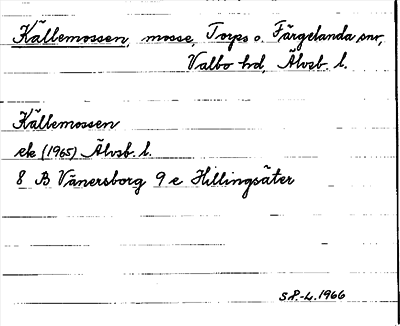 Källemossen, mosse, Torps o. Färgelanda snr,
Valbo hd, Älvsb. l.
Källemossen
ek (1965) Älvsb. l.
8 B Vänersborg 9 e Hillingsäter
SP.-L. 1966